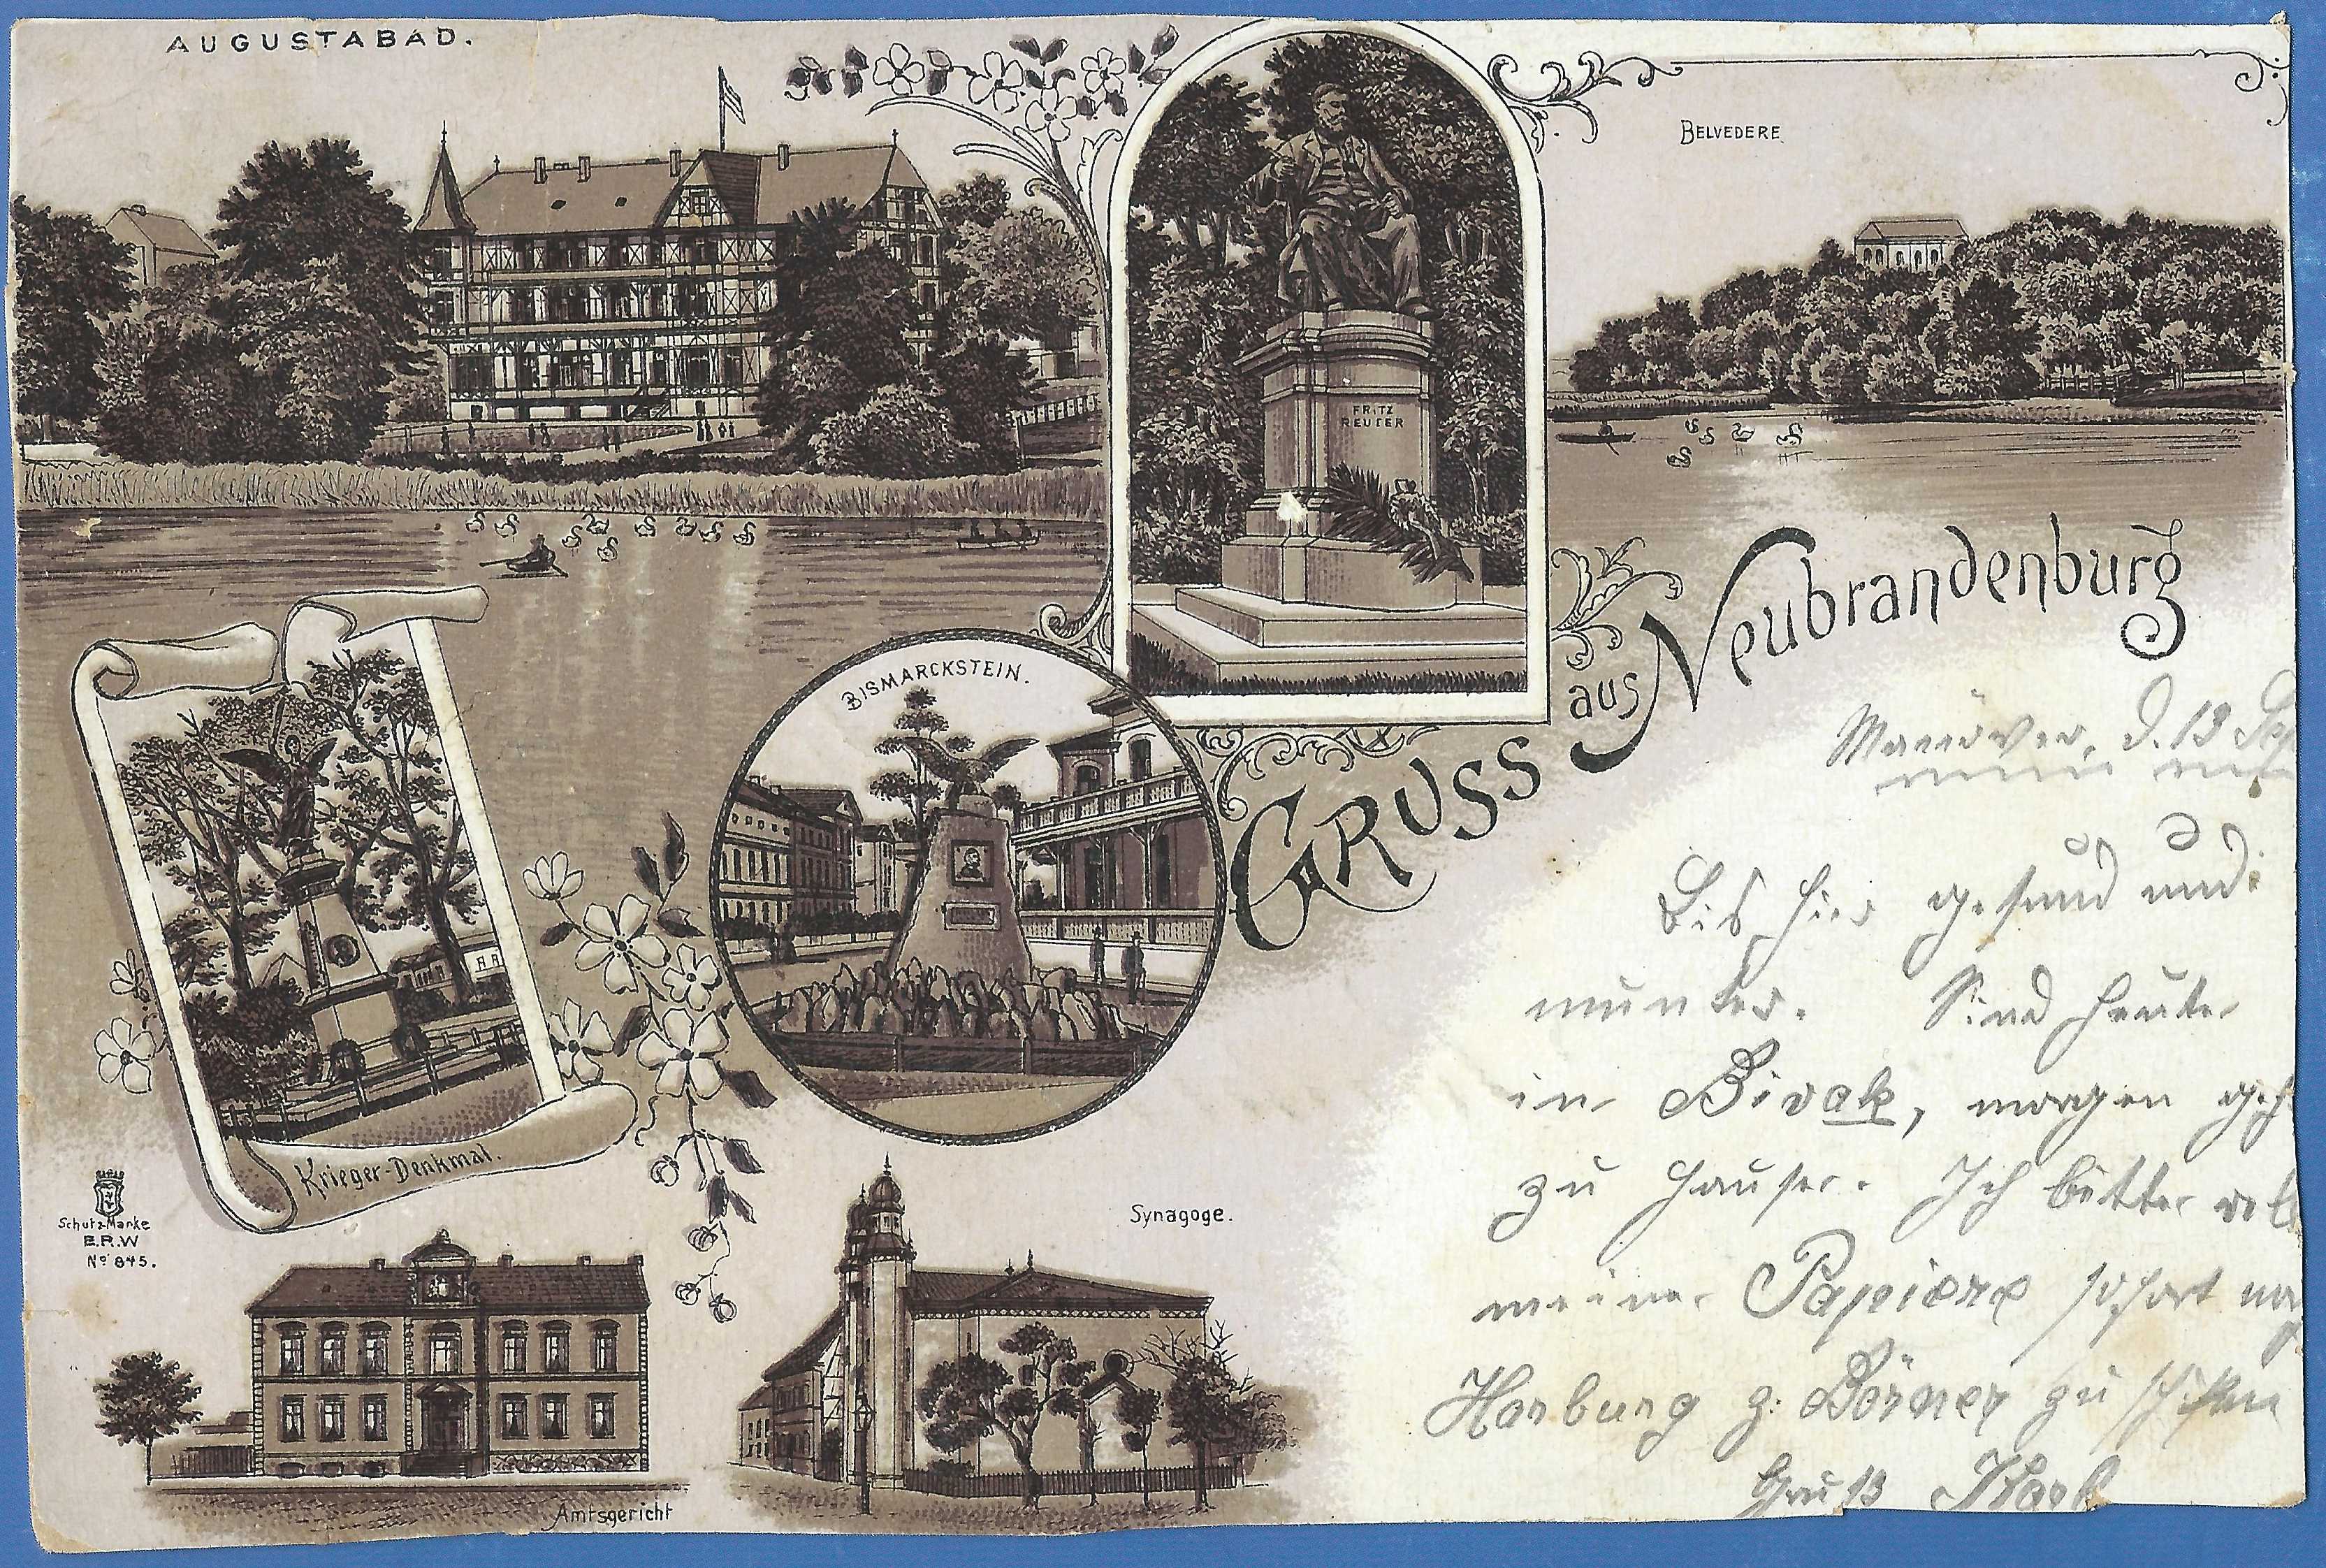 AUGUSTABAD.
FRITZ
REUTER
BELVEDERE.
GRUSS aus Neubrandenburg
BISMARCKSTEIN.
Krieger-Denkmal.
Schutz-Marke
E.R.W
No 845.
Amtsgericht
Synagoge.
Manöver, d. 13 Sep
Bis hier gesund und
munter. Sind heute
in Bivak, morgen geh
zu Hause. Ich bitte
meine Papiere sofort
Harburg z. Börner zu schicken
Gruß Karl